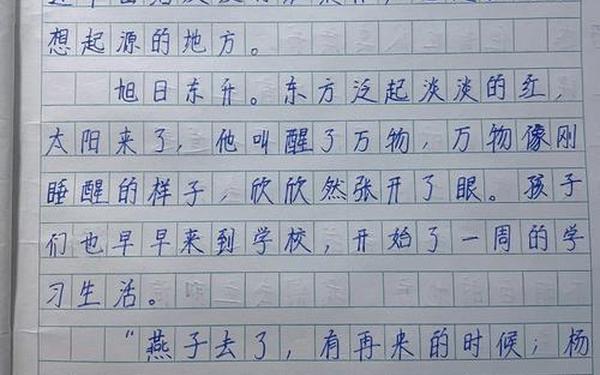 想起源的地方。
旭日东升。东方泛起淡淡的红,
太阳来了,他叫醒了万物,万物像刚
睡醒的样子,欣欣然张开了眼。孩子
们也早早来到学校,开始了一周的学
习生活。
“燕子去了,有再来的时候;杨